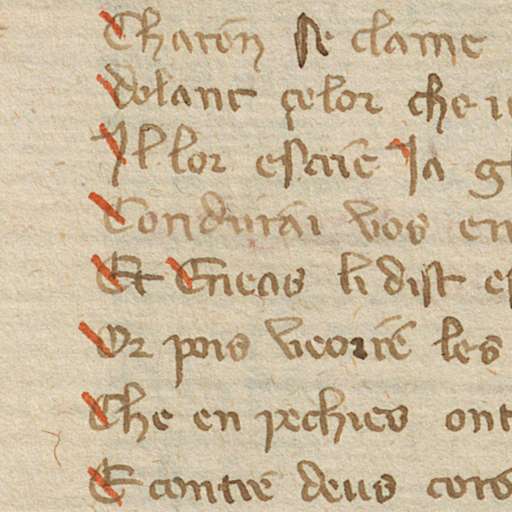 Charon se claime
Delant celor che
Il lor escrie Ja
Condurai vos en
Et Eneas li dist
Or pois veorie les
Che en pechies ont
E contre deus cors